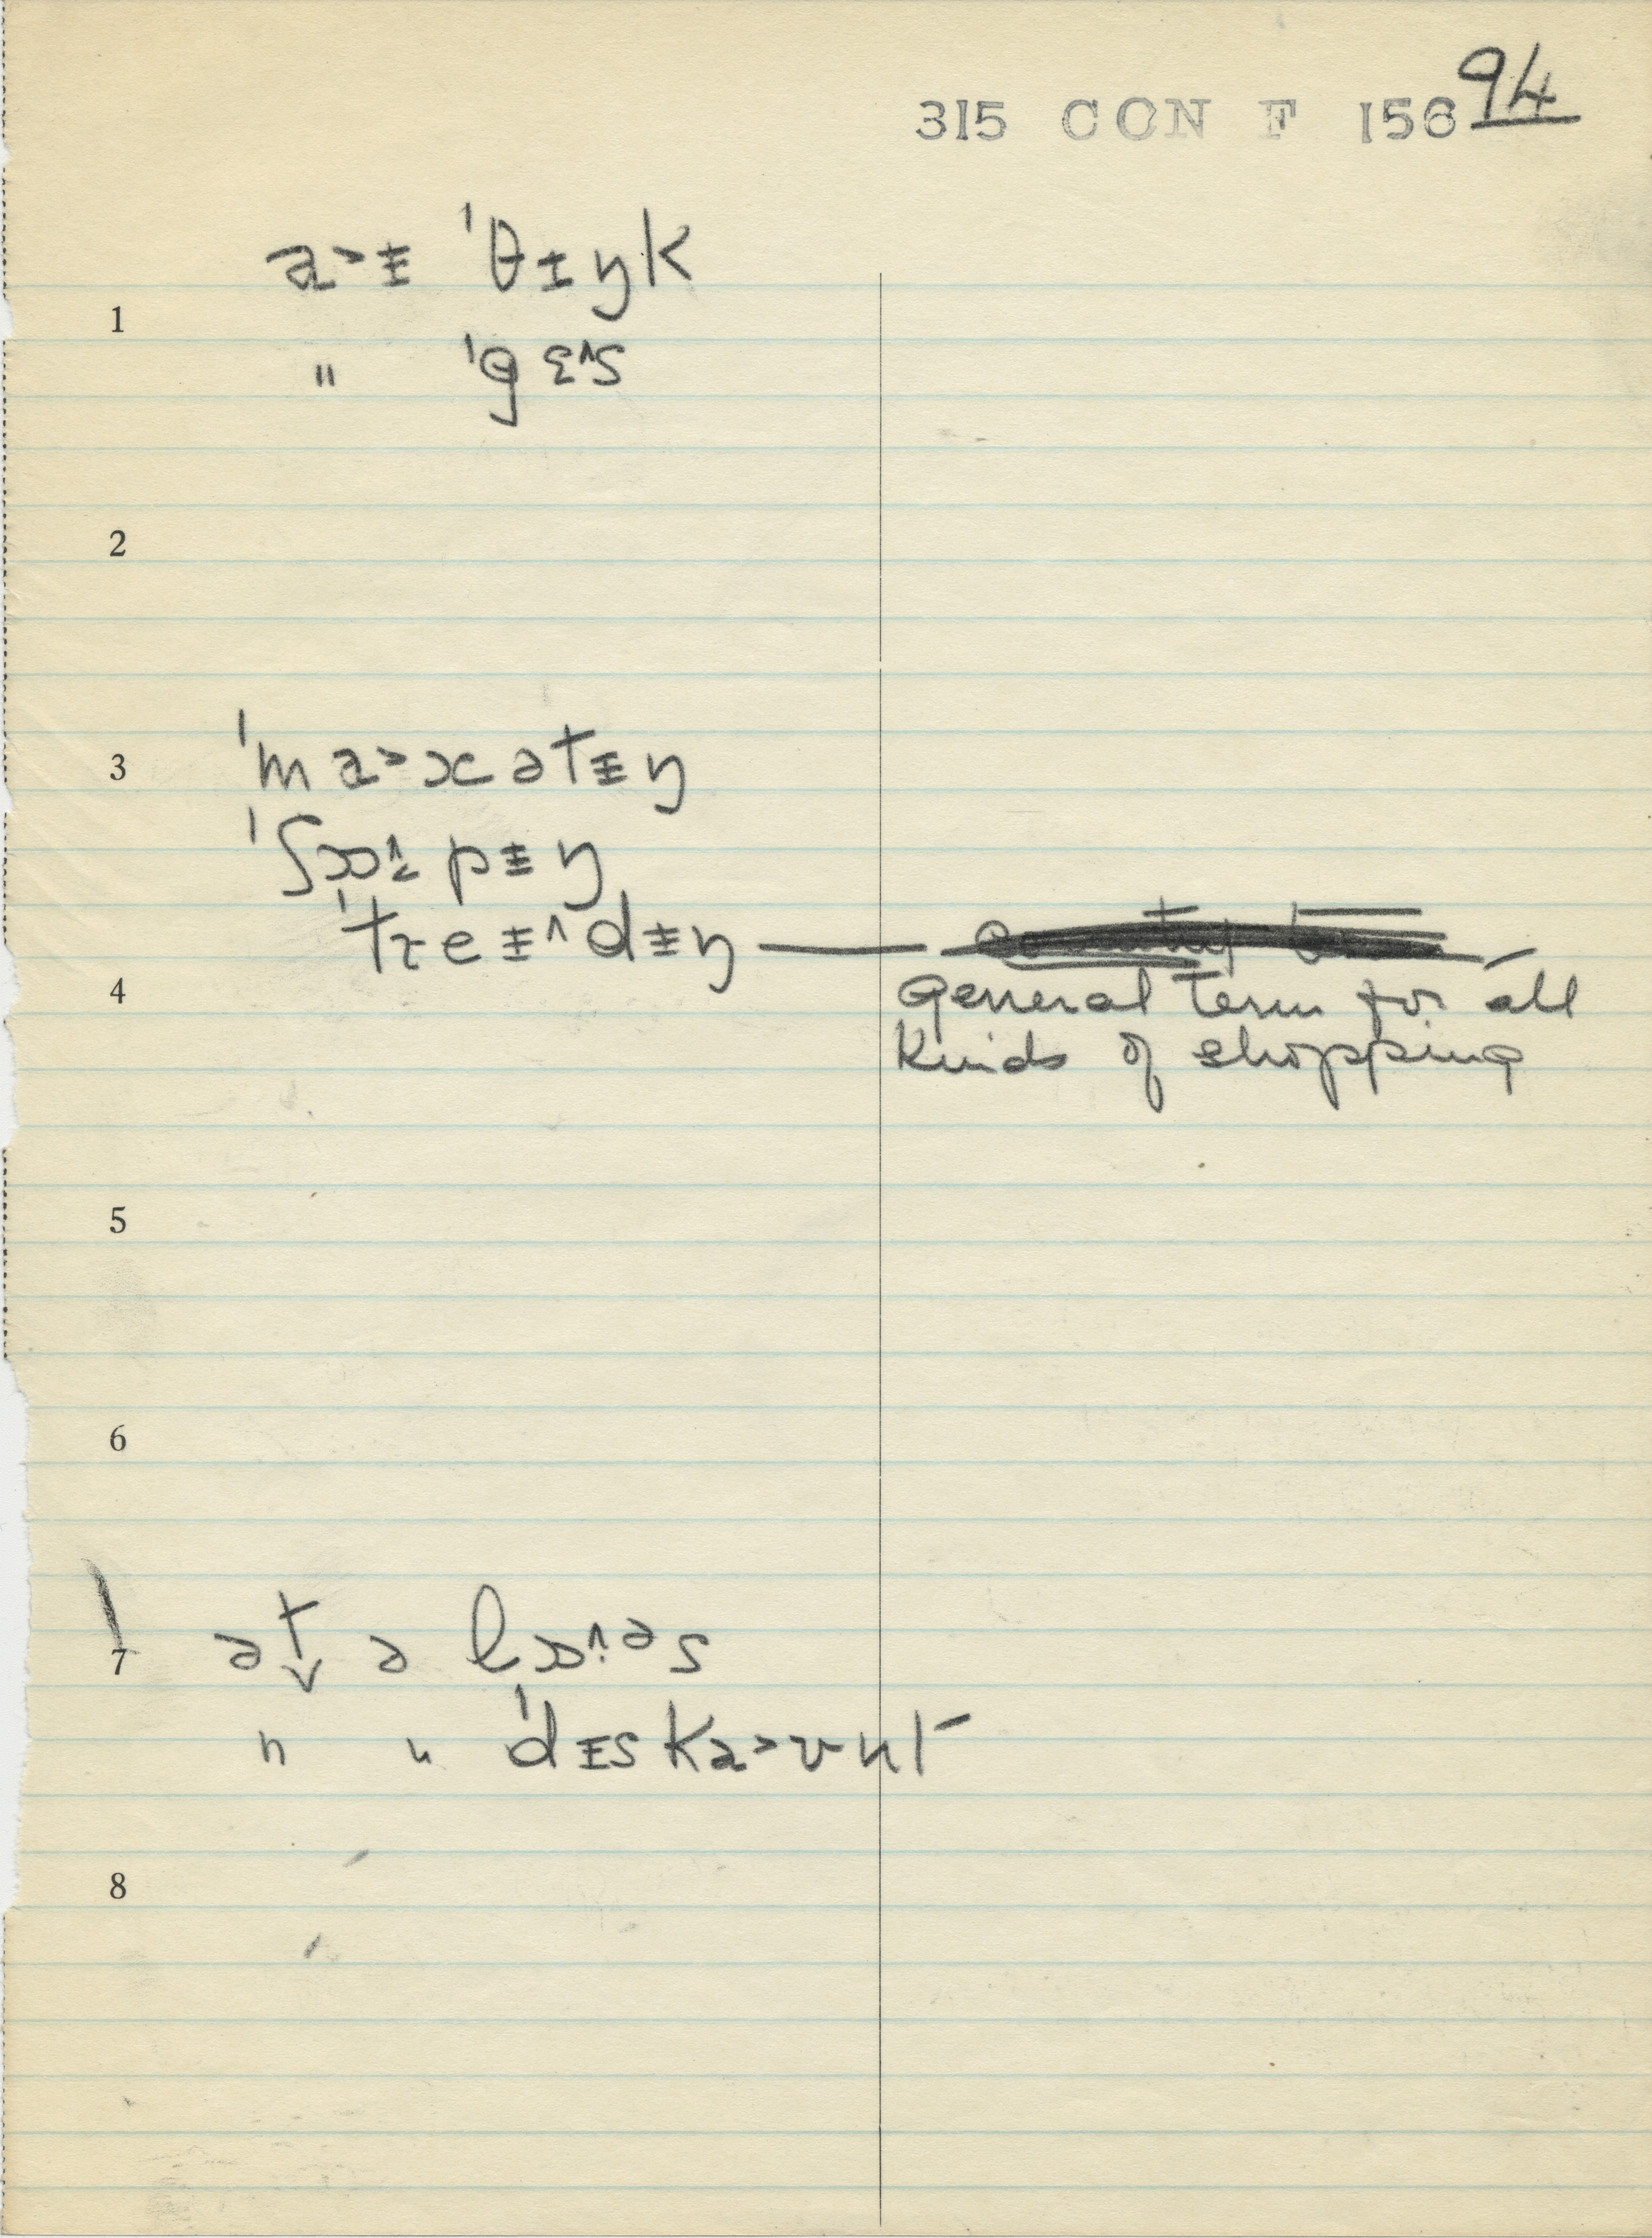 315 CON F 156 94
a˃ᵻ ˈθᵻŋk
1
" ˈgɛ^s
2
3 ˈma˃xətᵻŋ
ˈʃɒ^pᵻŋ
ˈtreᵻ^dᵻŋ —
4 General term for all
kinds of shopping
5
6
7 ət ə lɒ^əs
" " ˈdᵻska˃ʊnt
8